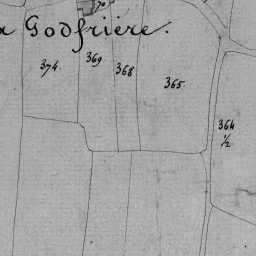 70
a Godfrière.
374.
369
368
365.
364
½